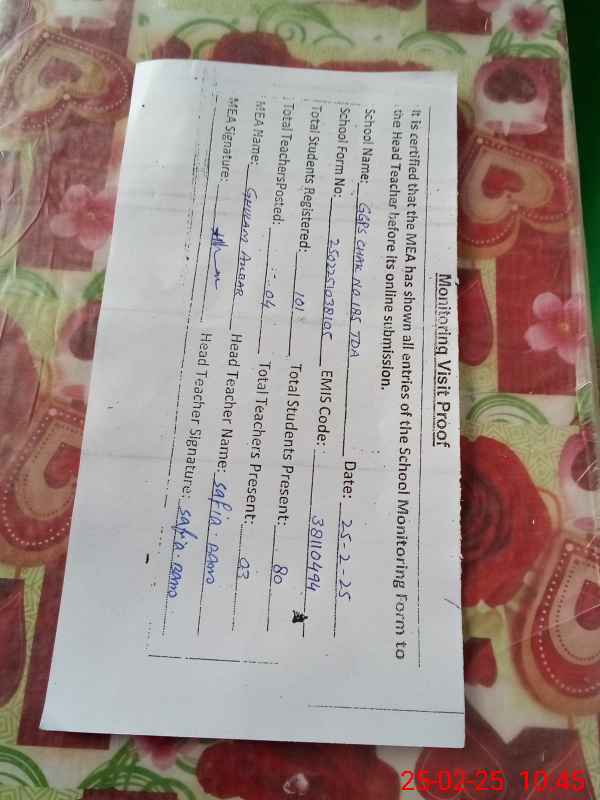 Monitoring Visit Proof
It is certified that the MEA has shown all entries of the School Monitoring Form to
the Head Teacher before its online submission.
School Name: GGPS CHAK NO 185 TDA Date: 25-2-25
School Form No: 250225103810S EMIS Code: 38110494
Total Students Registered: 101 Total Students Present: 80
Total TeachersPosted: 04 Total Teachers Present: 03
MEA Name: GHULAM AKBAR Head Teacher Name: Safia.Bano
MEA Signature: Head Teacher Signature: Safia.Bano
25-02-25 10:45